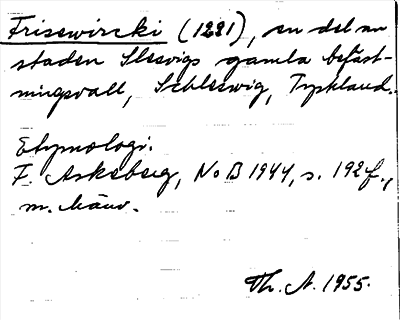 Frisewircki (1221), en del av
staden Slesvigs gamla befäst-
ningsvall, Schleswig, Tyskland.
Etymologi:
F. Askeberg, NoB 1944, s. 192 f.,
m. hänv.
Th. A. 1955.